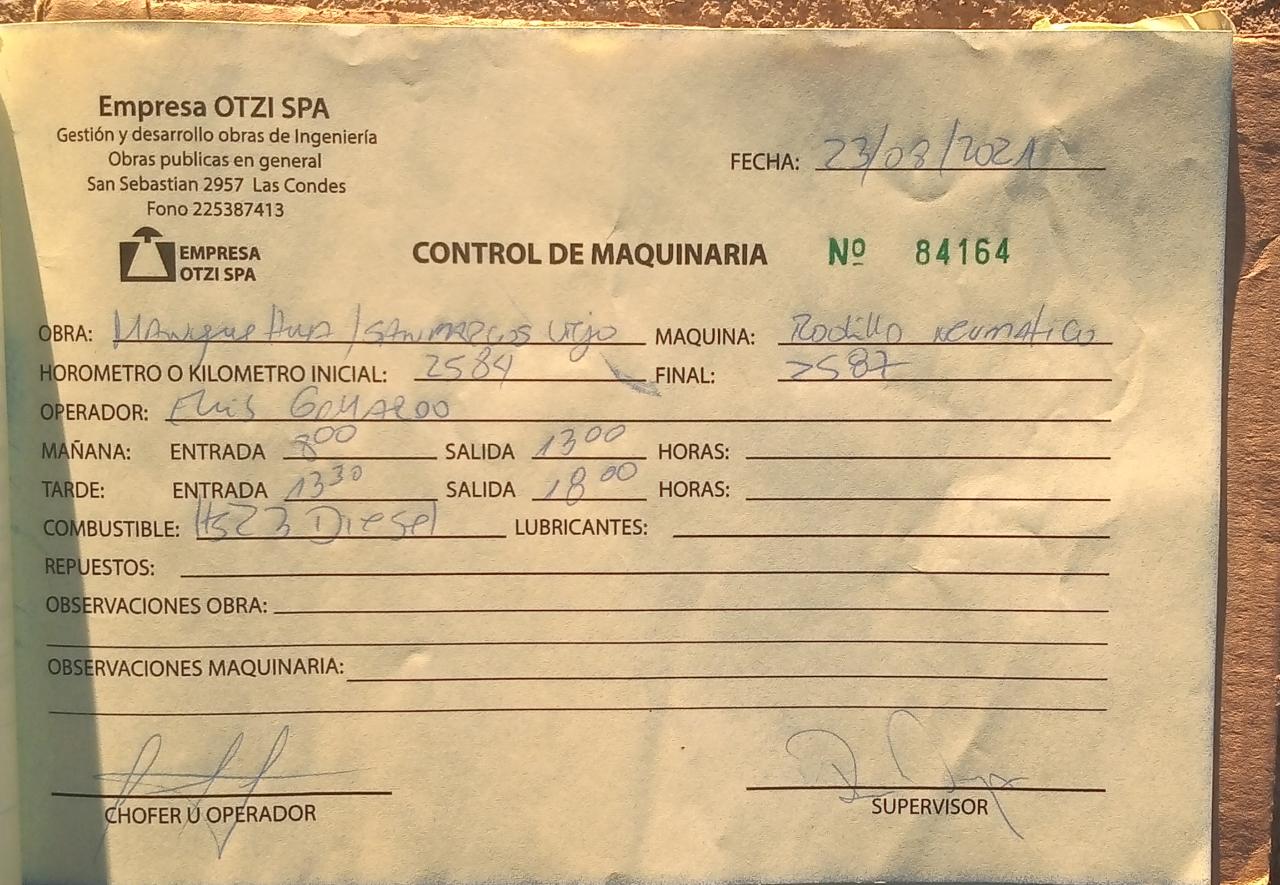 Empresa OTZI SPA
Gestión y desarrollo obras de Ingeniería
Obras publicas en general
San Sebastian 2957 Las Condes
Fono 225387413
FECHA: 23/08/2021
EMPRESA
OTZI SPA
CONTROL DE MAQUINARIA Nº 84164
OBRA: / SAN MARCOS Viejo MAQUINA: Rodillo neumatico
HOROMETRO O KILOMETRO INICIAL: 2584 FINAL: 2587
OPERADOR:
MAÑANA: ENTRADA 800 SALIDA 1300 HORAS:
TARDE: ENTRADA 1330 SALIDA 1800 HORAS:
COMBUSTIBLE: lts 23 Diesel LUBRICANTES:
REPUESTOS:
OBSERVACIONES OBRA:
OBSERVACIONES MAQUINARIA:
CHOFER U OPERADOR SUPERVISOR